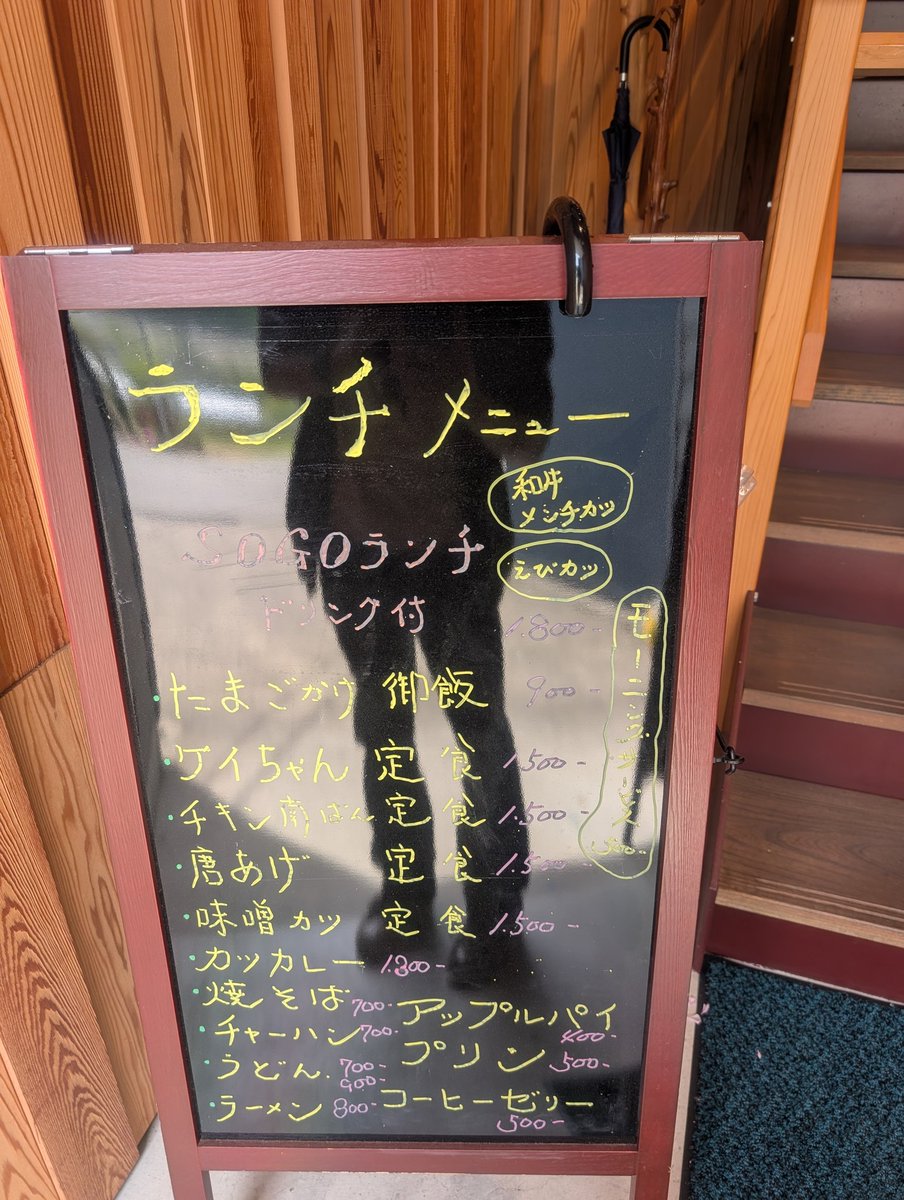 ランチメニュー
和牛
メンチカツ
SOGOランチ
えびカツ
ドリンク付
1.800-
たまごかけ 御飯 900-
ケイちゃん 定食 1.500-
チキン南ばん定食 1.500-
唐あげ 定食 1.500-
味噌カツ 定食 1.500-
カツカレー
焼そば 700-
チャーハン 700-
うどん 700-
900-
ラーメン 800-
アップルパイ
400-
プリン 500-
コーヒーゼリー
500-
モーニングサービス
500-